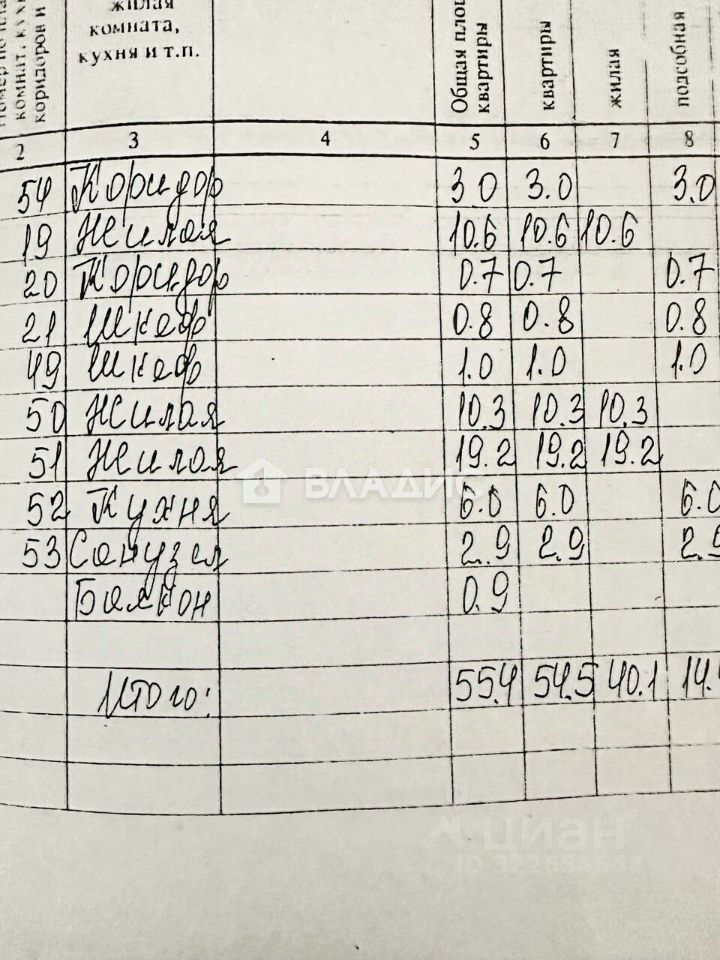 жилая
комната,
кухня и т.п.
комнат, кухни
коридоров и
Общая площ
квартиры
квартиры
жилая
подсобная
2 3 4 5 6 7 8
54 Коридор 3.0 3.0 3.0
19 Жилая 10.6 10.6 10.6
20 Коридор 0.7 0.7 0.7
21 Шкаф 0.8 0.8 0.8
49 Шкаф 1.0 1.0 1.0
50 Жилая 10.3 10.3 10.3
51 Жилая 19.2 19.2 19.2
ВЛАДИС
52 Кухня 6.0 6.0 6.0
53 Санузел 2.9 2.9 2.9
Балкон 0.9
Итого: 55.4 54.5 40.1 14.4
циан